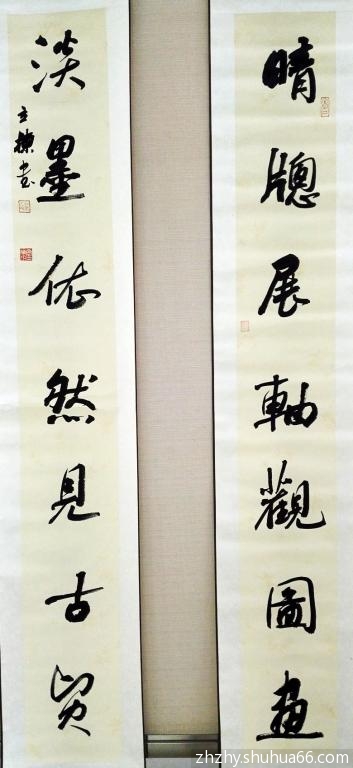 晴牕展軸觀圖畫
淡墨依然見古賢
立操書
zhzhy.shuhua66.com